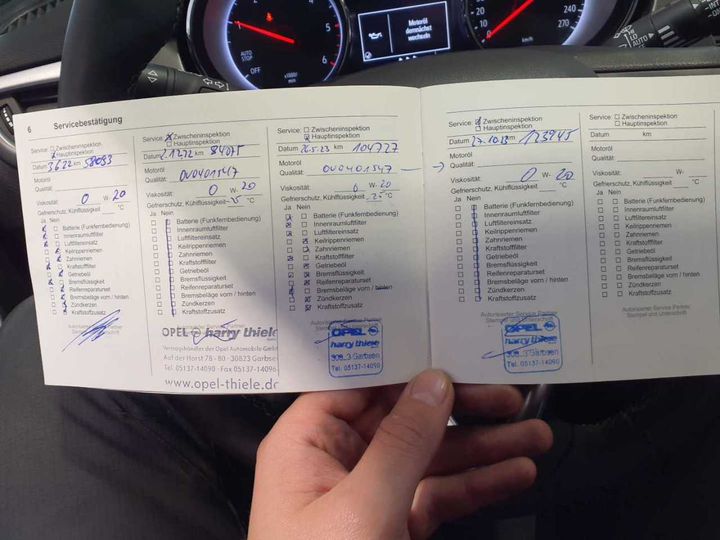 Motoröl
demnächst
wechseln
AUTO
STOP
OFF
1
5
6
x1000/
min
0
30
240
270
km/h
HI
LO
AUTO
OFF
6 Servicebestätigung
Service: Zwischeninspektion
Hauptinspektion
Datum 3.6.22 km 58093
Motoröl
Qualität:
Viskosität: 0 W- 20
Gefrierschutz, Kühlflüssigkeit: °C
Ja Nein
Batterie (Funkfernbedienung)
Innenraumluftfilter
Luftfiltereinsatz
Keilrippenriemen
Zahnriemen
Kraftstofffilter
Getriebeöl
Bremsflüssigkeit
Reifenreparaturset
Bremsbeläge vorn / hinten
Zündkerzen
Kraftstoffzusatz
Service: Zwischeninspektion
Hauptinspektion
Datum 2.12.22 km 84075
Motoröl
Qualität: OV0401547
Viskosität: 0 W- 20
Gefrierschutz, Kühlflüssigkeit °C
Ja Nein
Batterie (Funkfernbedienung)
Innenraumluftfilter
Luftfiltereinsatz
Keilrippenriemen
Zahnriemen
Kraftstofffilter
Getriebeöl
Bremsflüssigkeit
Reifenreparaturset
Bremsbeläge vorn / hinten
Zündkerzen
Kraftstoffzusatz
OPEL harry thiele
Vertragshändler der Opel Automobile GmbH
Auf der Horst 78 - 80 · 30823 Garbsen
Tel. 05137-14090 · Fax 05137-14096
www.opel-thiele.de
Service: Zwischeninspektion
Hauptinspektion
Datum 26.5.23 km 104727
Motoröl
Qualität: OV0401547
Viskosität: 0 W- 20
Gefrierschutz, Kühlflüssigkeit -25 °C
Ja Nein
Batterie (Funkfernbedienung)
Innenraumluftfilter
Luftfiltereinsatz
Keilrippenriemen
Zahnriemen
Kraftstofffilter
Getriebeöl
Bremsflüssigkeit
Reifenreparaturset
Bremsbeläge vorn / hinten
Zündkerzen
Kraftstoffzusatz
Autorisierter Service Partner
OPEL
harry thiele
Garbsen
Tel. 05137-14090
Service: Zwischeninspektion
Hauptinspektion
Datum 27.10.23 km 123945
Motoröl
Qualität:
Viskosität: 0 W- 20
Gefrierschutz, Kühlflüssigkeit: °C
Ja Nein
Batterie (Funkfernbedienung)
Innenraumluftfilter
Luftfiltereinsatz
Keilrippenriemen
Zahnriemen
Kraftstofffilter
Getriebeöl
Bremsflüssigkeit
Reifenreparaturset
Bremsbeläge vorn / hinten
Zündkerzen
Kraftstoffzusatz
Autorisierter Service Partner
OPEL
harry thiele
Garbsen
Tel. 05137-14090
Service: Zwischeninspektion
Hauptinspektion
Datum km
Motoröl
Qualität:
Viskosität: W-
Gefrierschutz, Kühlflüssigkeit: °C
Ja Nein
Batterie (Funkfernbedienung)
Innenraumluftfilter
Luftfiltereinsatz
Keilrippenriemen
Zahnriemen
Kraftstofffilter
Getriebeöl
Bremsflüssigkeit
Reifenreparaturset
Bremsbeläge vorn / hinten
Zündkerzen
Kraftstoffzusatz
Autorisierter Service Partner
Stempel und Unterschrift